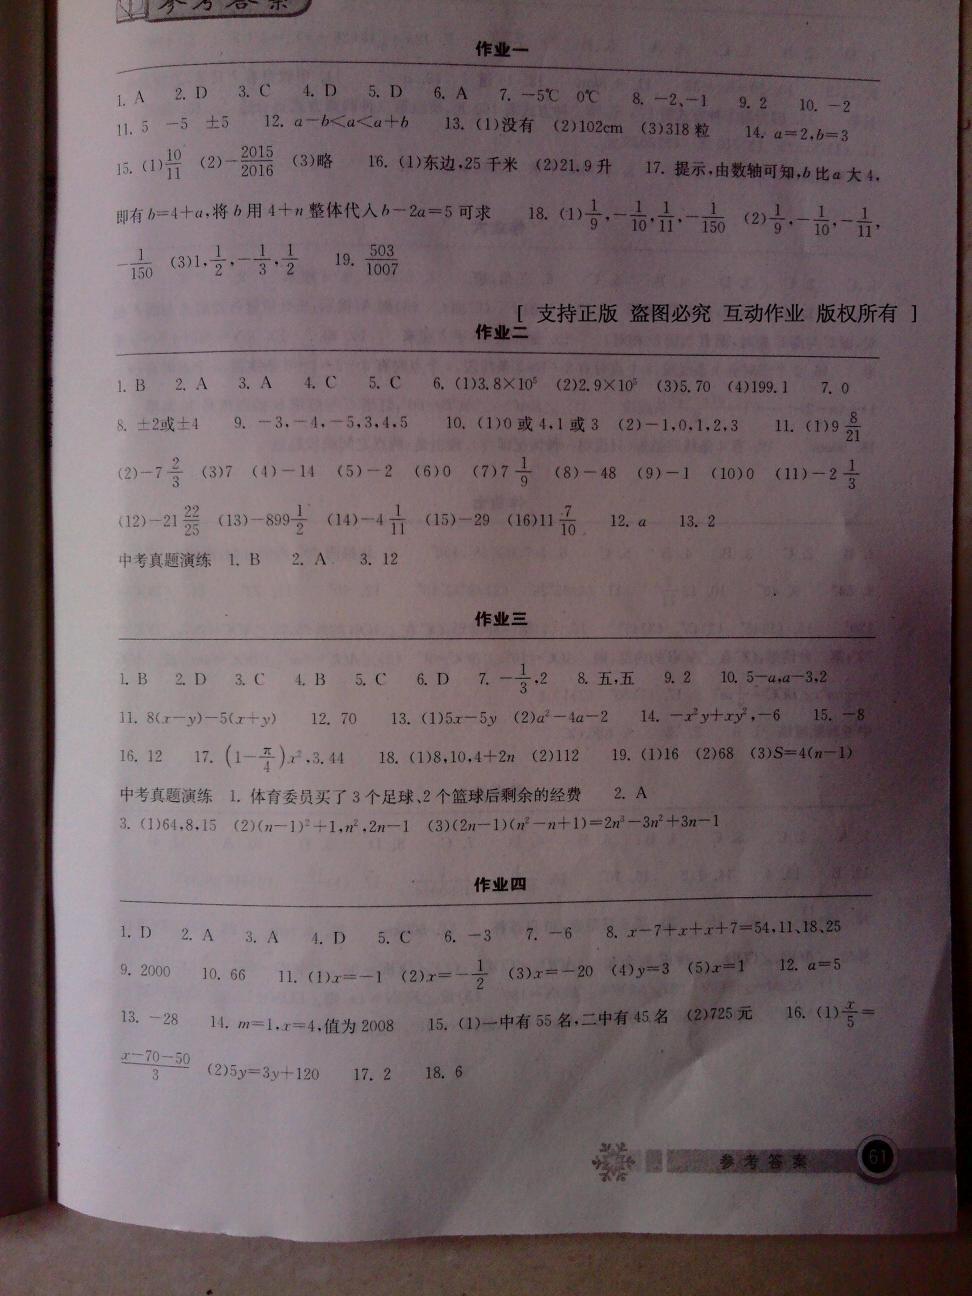 参考答案
作业一
1. A 2. D 3. C 4. D 5. D 6. A 7. －5℃ 0℃ 8. －2、－1 9. 2 10. －2
11. 5 －5 ±5 12. a－b<a<a＋b 13. (1)没有 (2)102cm (3)318 粒 14. a＝2,b＝3
15. (1)10/11 (2)－2015/2016 (3)略 16. (1)东边,25 千米 (2)21.9 升 17. 提示,由数轴可知,b 比 a 大 4,
即有 b＝4＋a,将 b 用 4＋n 整体代入 b－2a＝5 可求 18. (1)1/9,－1/10,1/11,－1/150 (2)1/9,－1/10,－1/11,
－1/150 (3)1,1/2,－1/3,1/2 19. 503/1007
[ 支持正版 盗图必究 互动作业 版权所有 ]
作业二
1. B 2. A 3. A 4. C 5. C 6. (1)3.8×10⁵ (2)2.9×10⁵ (3)5.70 (4)199.1 7. 0
8. ±2或±4 9. －3,－4,－5,3,4,5 10. (1)0 或 4,1 或 3 (2)－1,0,1,2,3 11. (1)9 8/21
(2)－7 2/3 (3)7 (4)－14 (5)－2 (6)0 (7)7 1/9 (8)－48 (9)－1 (10)0 (11)－2 1/3
(12)－21 22/25 (13)－899 1/2 (14)－4 1/11 (15)－29 (16)11 7/10 12. a 13. 2
中考真题演练 1. B 2. A 3. 12
作业三
1. B 2. D 3. C 4. B 5. C 6. D 7. －1/3,2 8. 五,五 9. 2 10. 5－a,a－3,2
11. 8(x－y)－5(x＋y) 12. 70 13. (1)5x－5y (2)a²－4a－2 14. －x²y＋xy²,－6 15. －8
16. 12 17. (1－π/4)x²,3.44 18. (1)8,10,4＋2n (2)112 19. (1)16 (2)68 (3)S＝4(n－1)
中考真题演练 1. 体育委员买了 3 个足球、2 个篮球后剩余的经费 2. A
3. (1)64,8,15 (2)(n－1)²＋1,n²,2n－1 (3)(2n－1)(n²－n＋1)＝2n³－3n²＋3n－1
作业四
1. D 2. A 3. A 4. D 5. C 6. －3 7. －6 8. x－7＋x＋x＋7＝54,11、18、25
9. 2000 10. 66 11. (1)x＝－1 (2)x＝－1/2 (3)x＝－20 (4)y＝3 (5)x＝1 12. a＝5
13. －28 14. m＝1,x＝4,值为 2008 15. (1)一中有 55 名,二中有 45 名 (2)725 元 16. (1)x/5＝
(x－70－50)/3 (2)5y＝3y＋120 17. 2 18. 6
参考答案 61